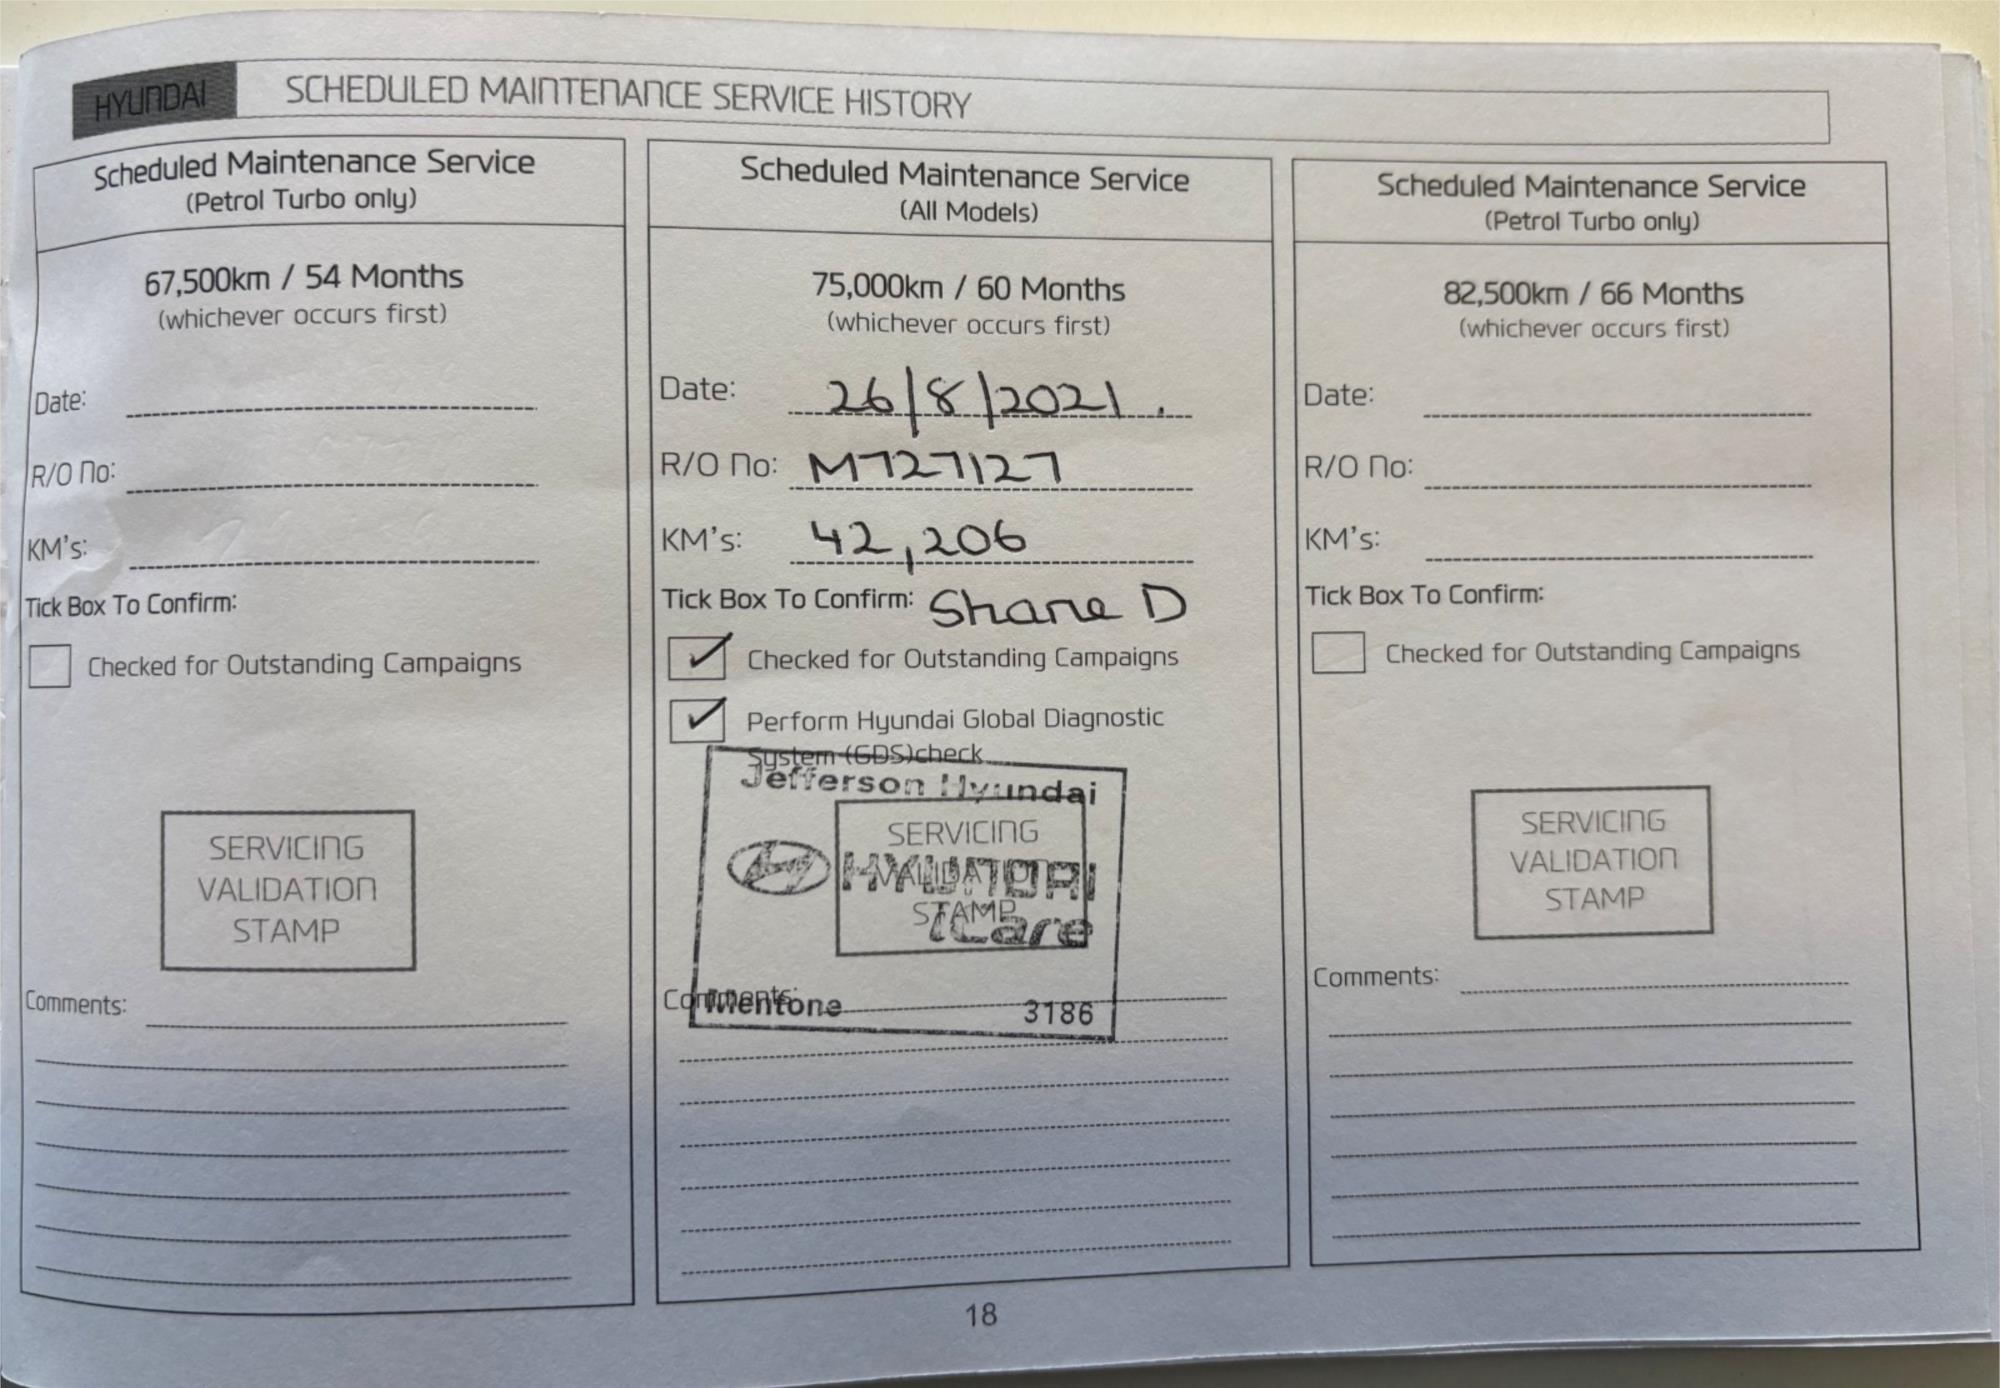 HYUNDAI
SCHEDULED MAINTENANCE SERVICE HISTORY
Scheduled Maintenance Service
(Petrol Turbo only)
67,500km / 54 Months
(whichever occurs first)
Date:
R/O No:
KM's:
Tick Box To Confirm:
Checked for Outstanding Campaigns
SERVICING
VALIDATION
STAMP
Comments:
Scheduled Maintenance Service
(All Models)
75,000km / 60 Months
(whichever occurs first)
Date: 26/8/2021.
R/O No: M727127
KM's: 42,206
Tick Box To Confirm: Shane D
Checked for Outstanding Campaigns
Perform Hyundai Global Diagnostic
System (GDS)check
Jefferson Hyundai
SERVICING
VALIDATION
HYUNDAI
STAMP
iCare
Comments:
Mentone 3186
Scheduled Maintenance Service
(Petrol Turbo only)
82,500km / 66 Months
(whichever occurs first)
Date:
R/O No:
KM's:
Tick Box To Confirm:
Checked for Outstanding Campaigns
SERVICING
VALIDATION
STAMP
Comments:
18